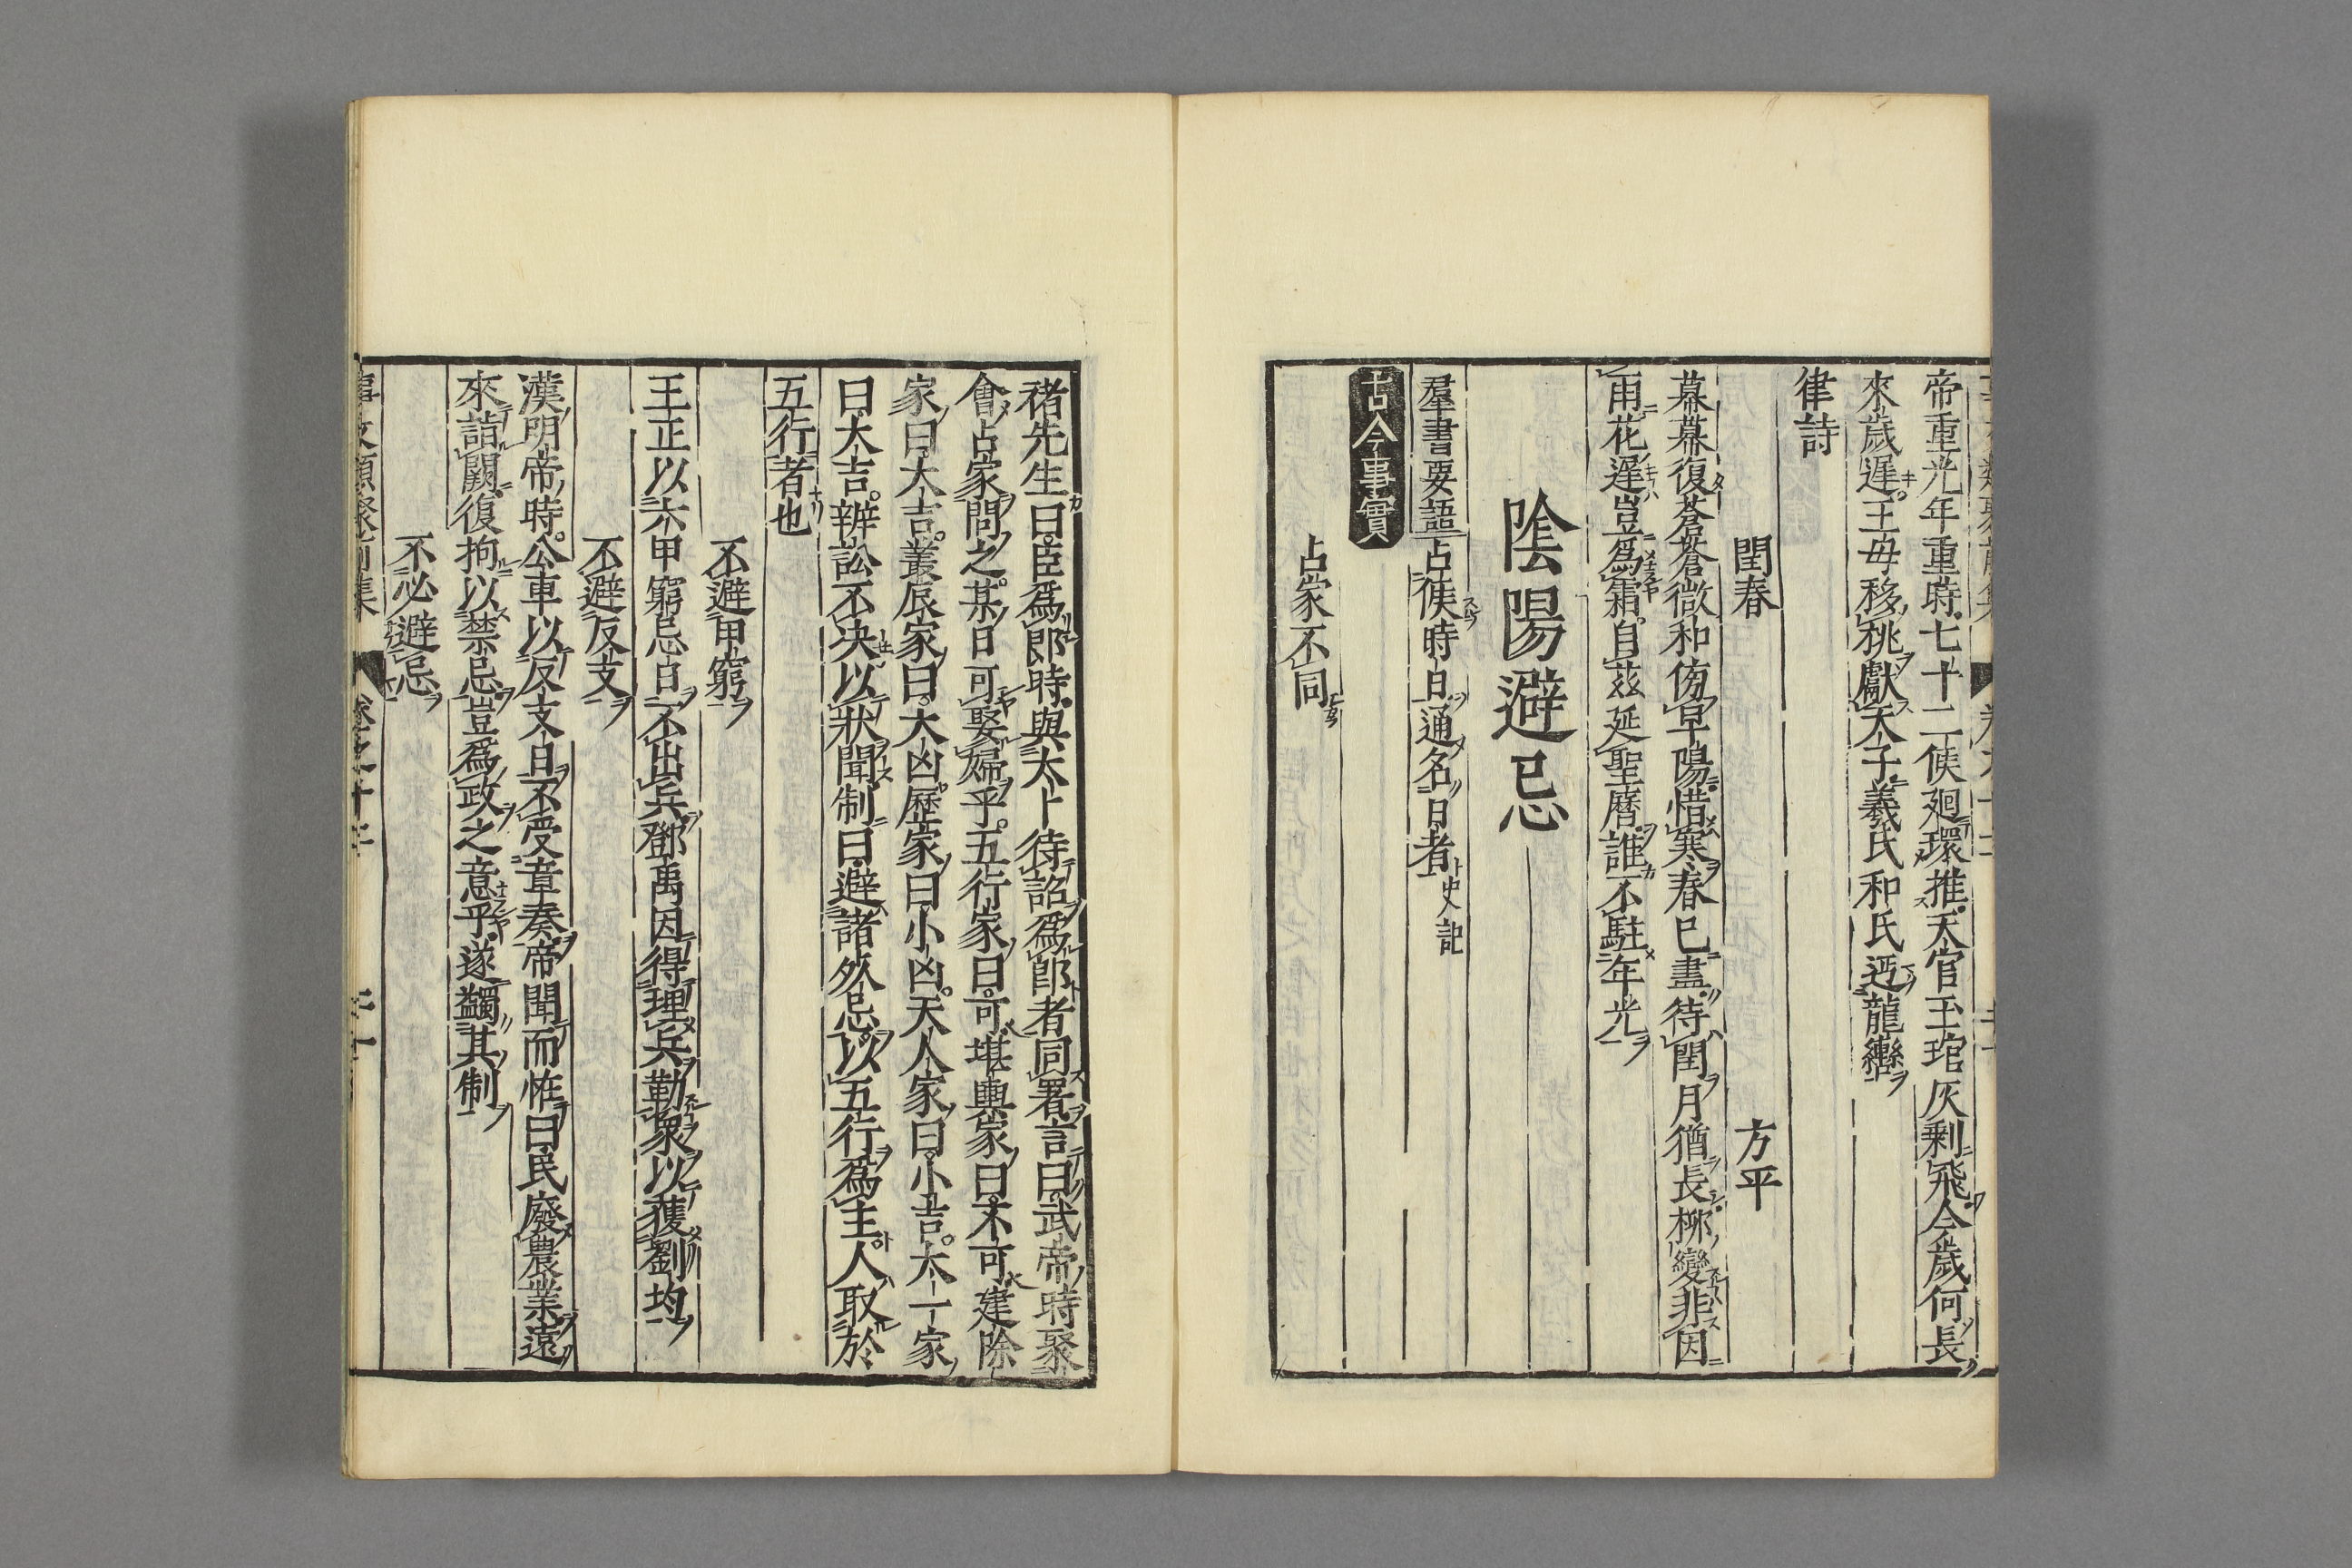 帝重光年重時七十二候廻環推天官玉琯灰剩飛今歲何長
來歲遲王母移桃獻天子羲氏和氏迊龍轡
律詩
閏春　方平
幕幕復蒼蒼微和傍早陽惜寒春已盡待閏月猶長柳變非因
雨花遲豈爲霜自茲延聖曆誰不駐年光
陰陽避忌
羣書要語 占候時日通名日者史記
古今事實
占家不同
褚先生曰臣爲郎時與太卜待詔爲郎者同署言曰武帝時聚
會占家問之某日可娶婦乎五行家曰可堪輿家曰不可建除
家曰大吉叢辰家曰大凶歷家曰小凶天人家曰小吉太一家
曰大吉辨訟不決以狀聞制曰避諸死忌以五行爲主人取於
五行者也
不避甲窮
王正以六甲窮忌日不出兵鄧禹因得理兵勒衆以獲劉均
不避反支
漢明帝時公車以反支日不受章奏帝聞而怪曰民廢農業遠
來詣闕復拘以禁忌豈爲政之意乎遂蠲其制
不必避忌
事文類聚前集　卷之十二